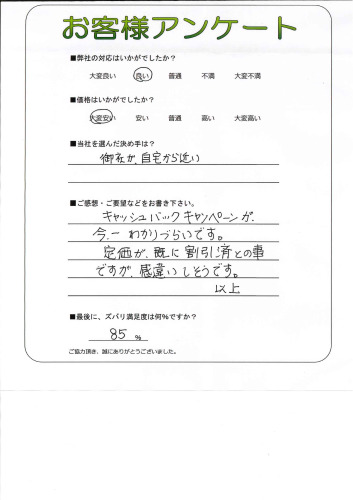 お客様アンケート
■弊社の対応はいかがでしたか?
大変良い 良い 普通 不満 大変不満
■価格はいかがでしたか?
大変安い 安い 普通 高い 大変高い
■当社を選んだ決め手は?
御社が、自宅から近い
■ご感想・ご要望などをお書き下さい。
キャッシュバックキャンペーンが、
今一わかりづらいです。
定価が、既に割引済との事
ですが、感違いしそうです。
以上
■最後に、ズバリ満足度は何%ですか?
85 %
ご協力頂き、誠にありがとうございました。